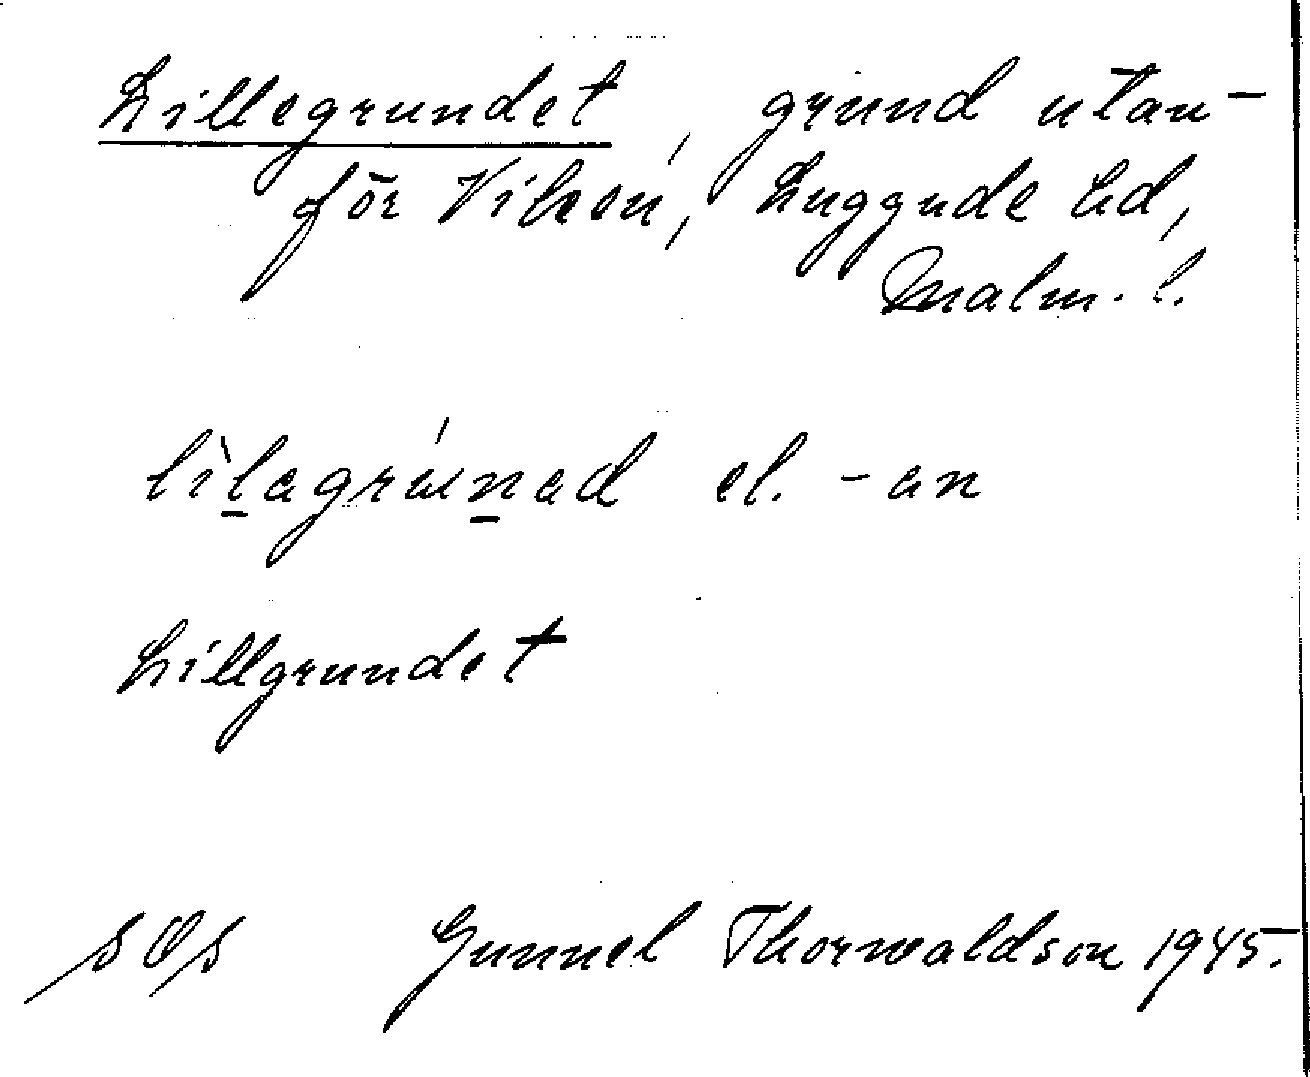 Lillegrundet, grund utan-
för Viken, Luggude hd,
Malm. l.
lìlagrúnad el. -an
Lillgrundet
Gunnel Thorwaldson 1945.